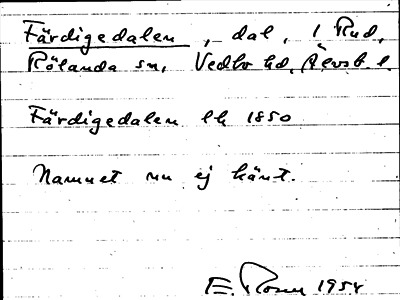 Färdigedalen, dal, 1 Rud,
Rölanda sn, Vedbo hd, Älvsb. l.
Färdigedalen lk 1850
Namnet nu ej känt.
E. Rosen 1954